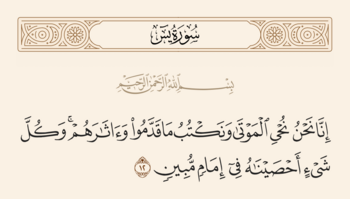 سُورَةُ يسٓ
بِسْمِ اللَّهِ الرَّحْمَٰنِ الرَّحِيمِ
إِنَّا نَحْنُ نُحْيِ الْمَوْتَىٰ وَنَكْتُبُ مَا قَدَّمُوا۟ وَءَاثَٰرَهُمْ ۚ وَكُلَّ
شَىْءٍ أَحْصَيْنَٰهُ فِىٓ إِمَامٍ مُّبِينٍ ١٢